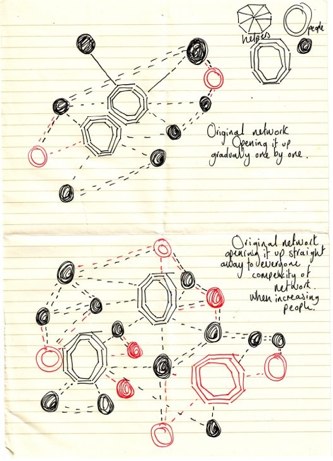 people
helpers
Original network
Opening it up
gradually one by one.
Original network
opening it up straight
away to everyone
complexity of
network
when increasing
people.